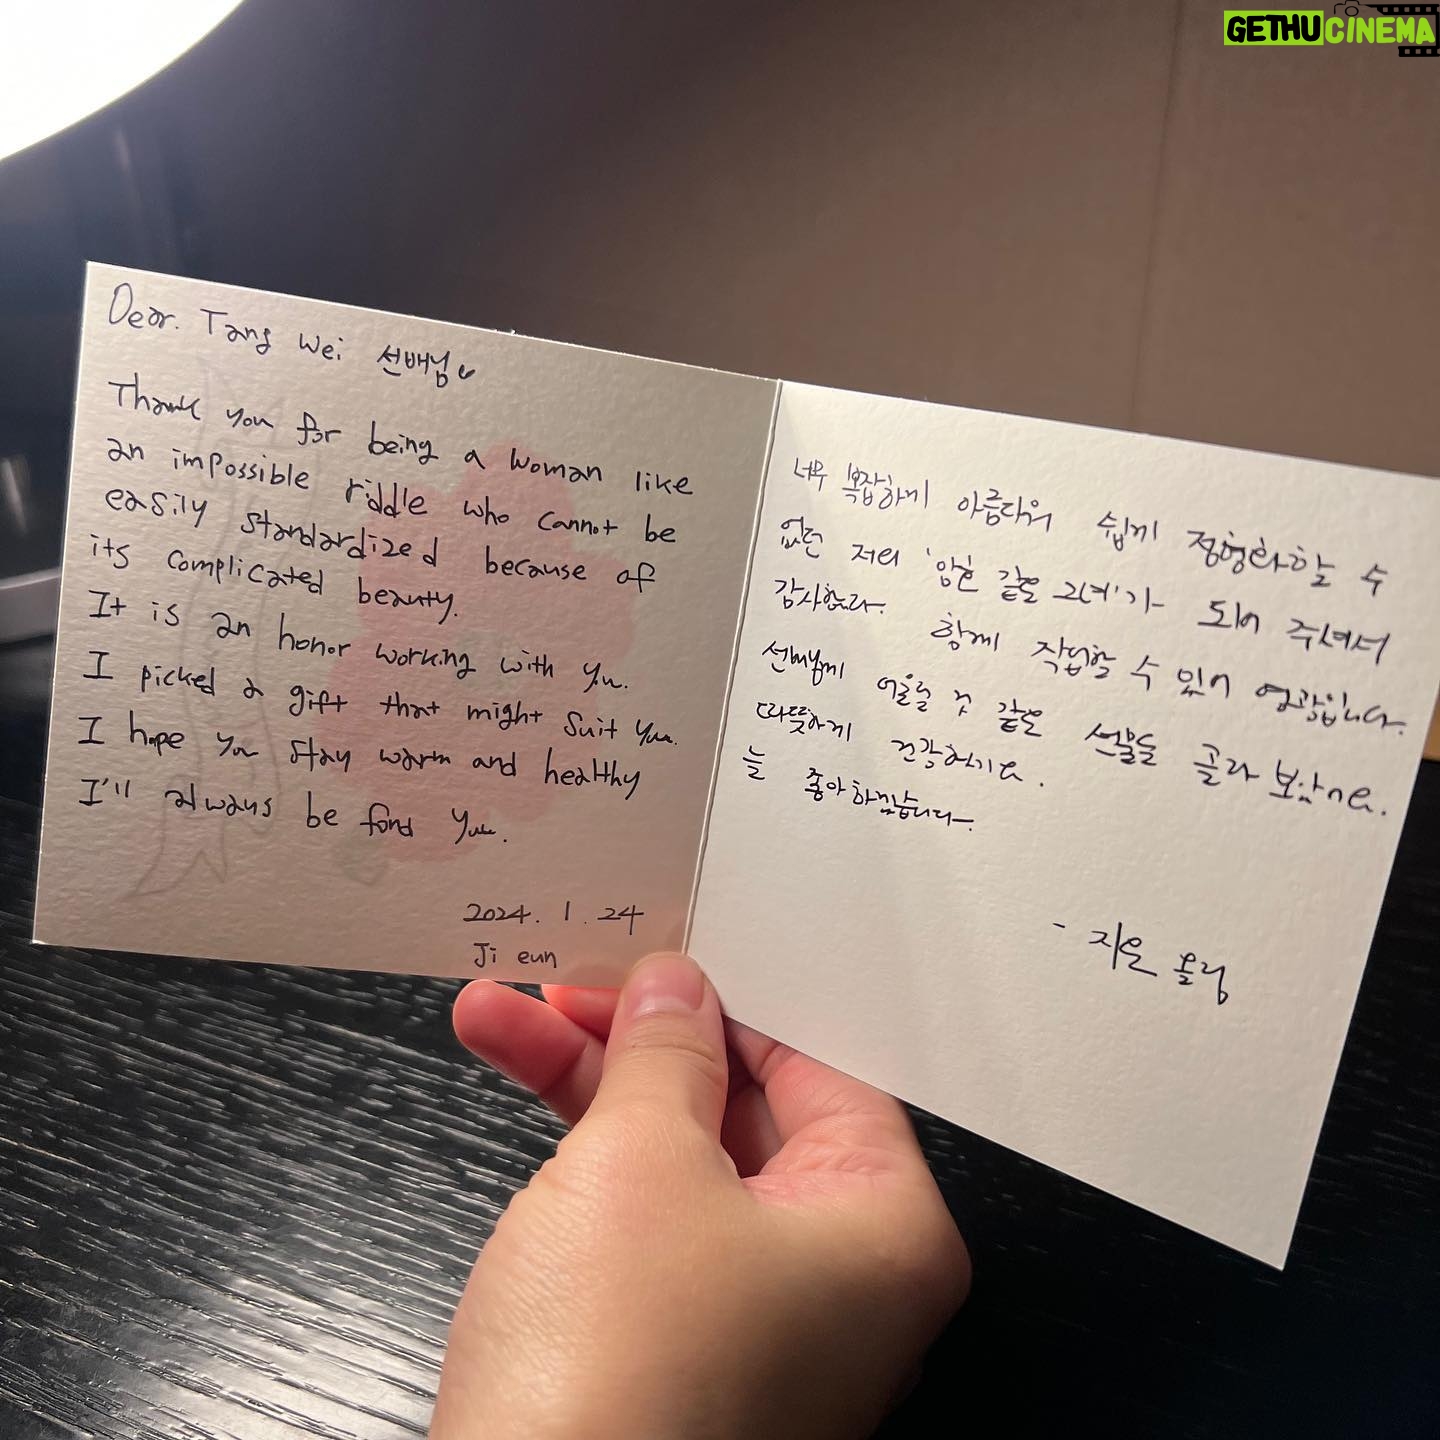 GETHUCINEMA
Dear. Tang Wei 선배님
Thank you for being a woman like
an impossible riddle who cannot be
easily standardized because of
its complicated beauty.
It is an honor working with you.
I picked a gift that might suit you.
I hope you stay warm and healthy
I'll always be fond you.
2024. 1. 24
Ji eun
너무 복잡하게 아름다워 쉽게 정형화할 수
없던 저의 '암호 같은 그녀'가 되어 주셔서
감사합니다. 함께 작업할 수 있어 영광입니다.
선배님께 어울릴 것 같은 선물을 골라 보았어요.
따뜻하게 건강하기를.
늘 좋아하겠습니다.
- 지은 올림